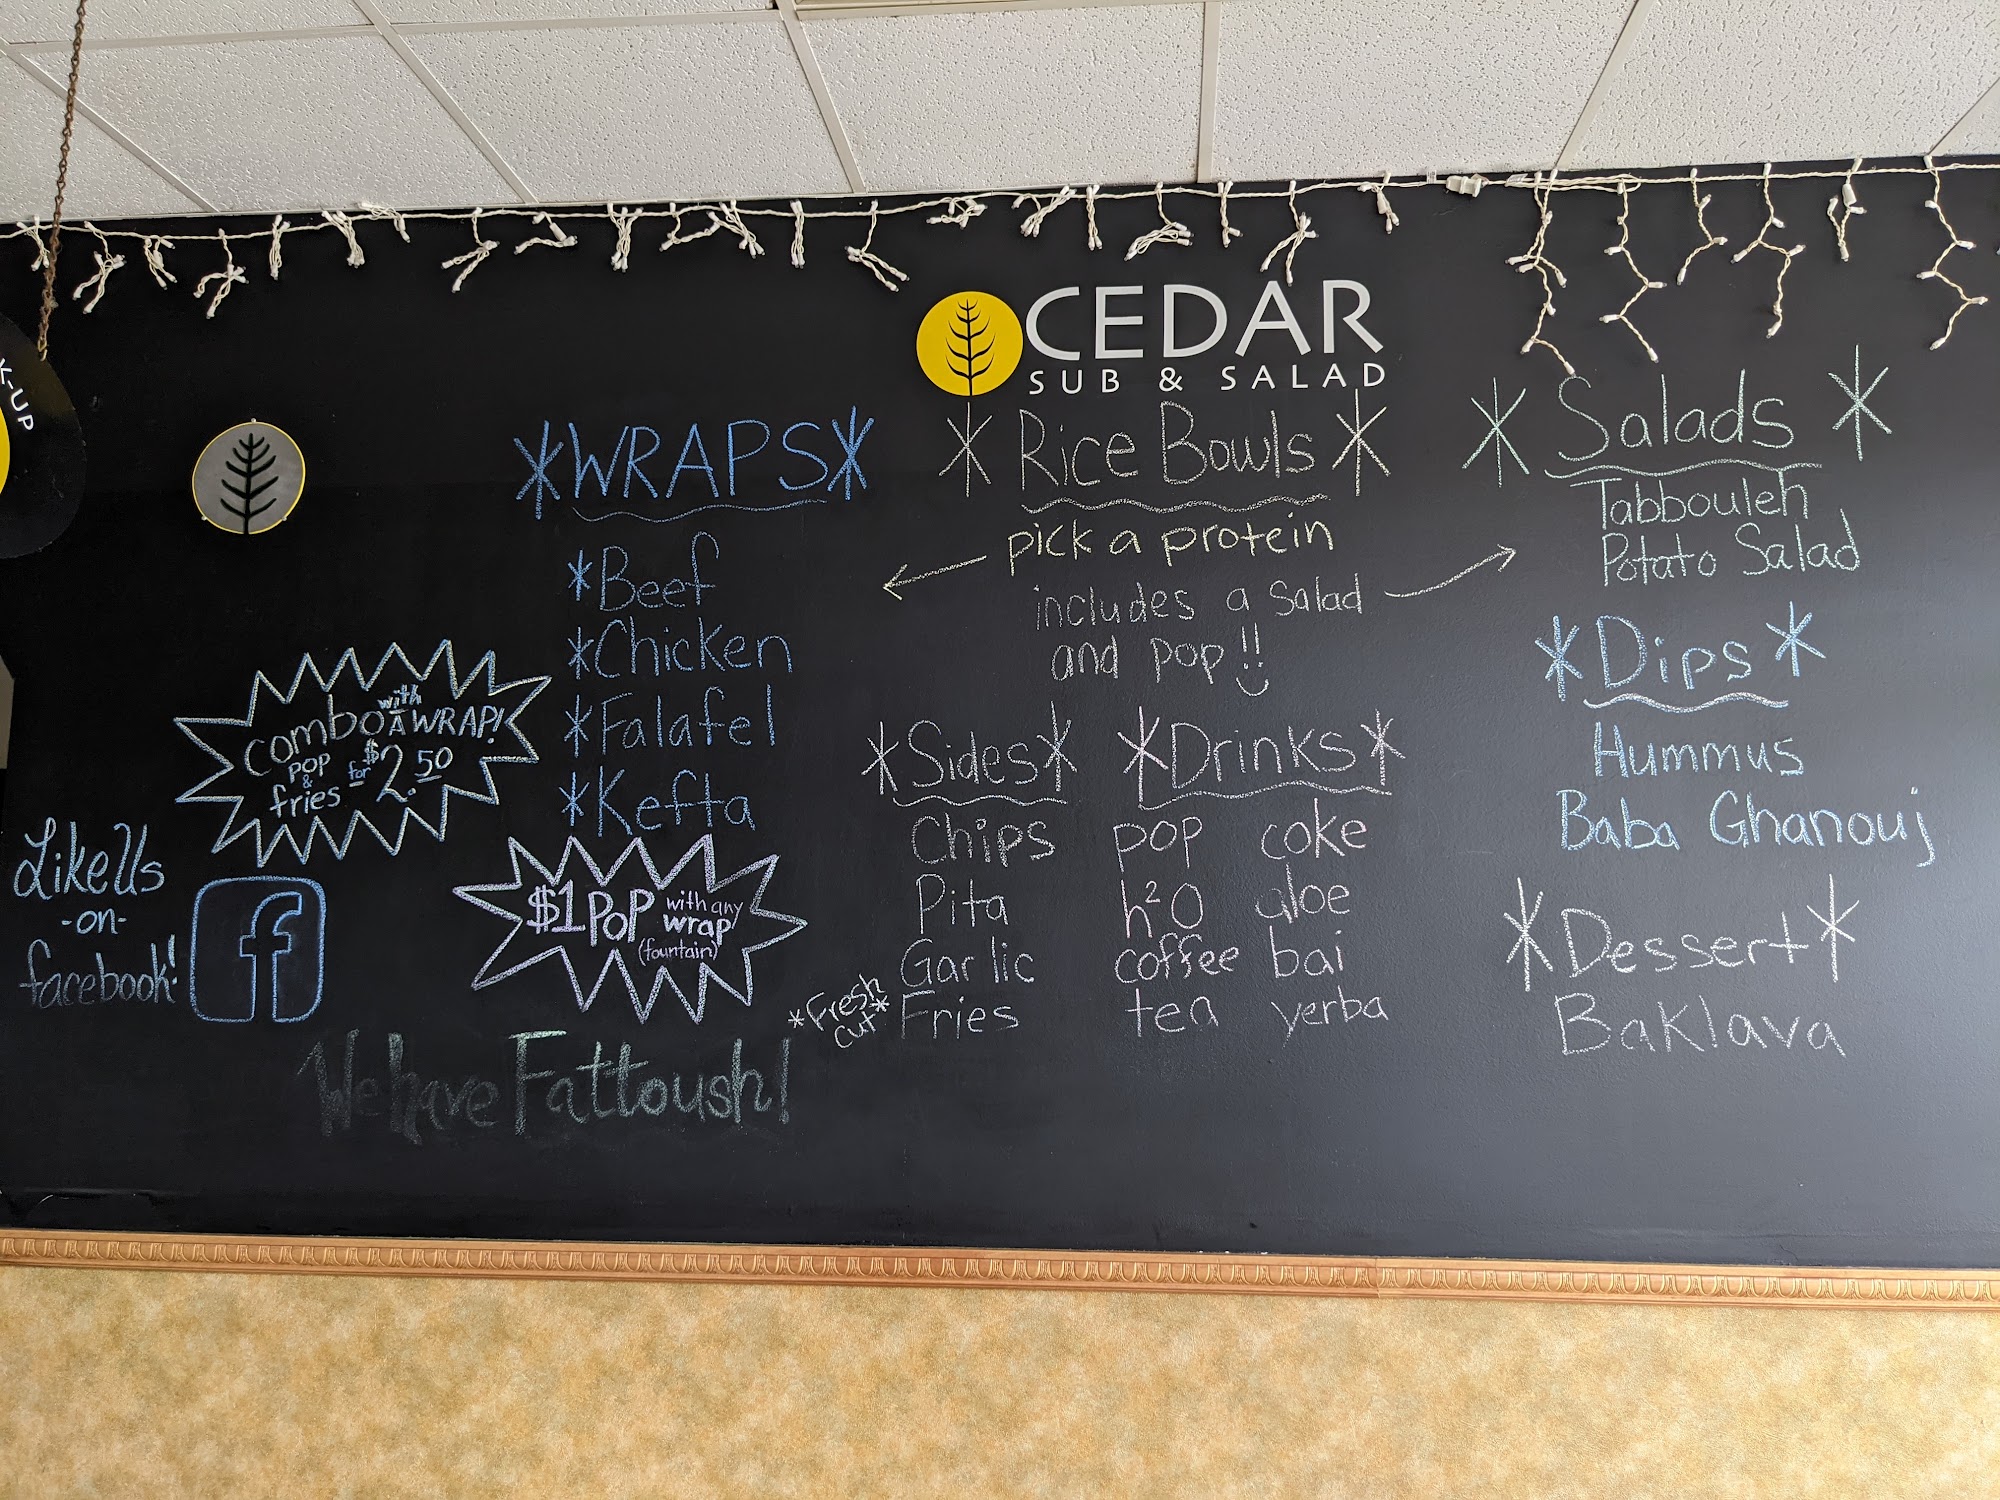 K-UP
CEDAR
SUB & SALAD
*WRAPS*
*Beef
*Chicken
*Falafel
*Kefta
combo with A WRAP!
pop & fries - for $2.50
$1 POP with any wrap
(fountain)
Like Us
-on-
facebook!
f
We have Fattoush!
*Rice Bowls*
pick a protein
includes a salad
and pop!!
*Sides*
Chips
Pita
Garlic
*Fresh cut* Fries
*Drinks*
pop coke
h²O aloe
coffee bai
tea yerba
*Salads*
Tabbouleh
Potato Salad
*Dips*
Hummus
Baba Ghanouj
*Dessert*
Baklava